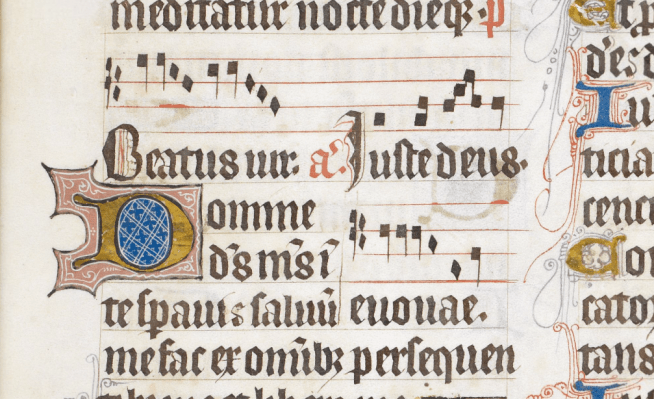 meditatur nocte dieq; p
Beatus uir. a. Juste deus.
Domine
ds ms i
te speauis saluū euouae.
me fac ex omib; persequen
et p
ds d
Iu
ticia
cenci
Con
cator
tans